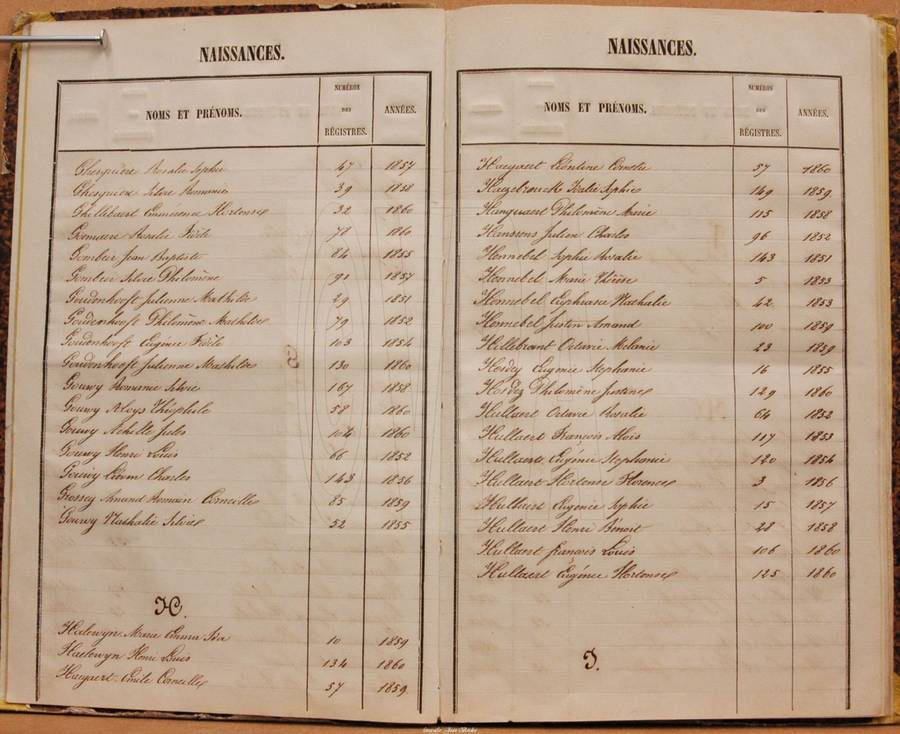 NAISSANCES.
NOMS ET PRÉNOMS. NUMÉROS DES RÉGISTRES. ANNÉES.
Ghesquiere Rosalie Sophie 47 1857
Ghesquiere Silvie Romanie 39 1858
Ghillebaert Emmérence Hortense 32 1860
Gomaere Rosalie 78 1860
Gombeir Jean Baptiste 84 1855
Gombeir Silvie Philomène 91 1857
Goudenhooft Julienne Mathilde 29 1851
Goudenhooft Philomène Mathilde 79 1852
Goudenhooft Eugénie 103 1854
Goudenhooft Julienne Mathilde 130 1860
Gouwy Romanie Silvie 167 1858
Gouwy Aloys Théophile 58 1860
Gouwy Achille Jules 104 1860
Gouwy Henri Louis 66 1852
Gouwy Charles 143 1856
Amand Romain Corneille 85 1859
Gouwy Nathalie Silvie 52 1855
H.
Haelewyn Marie Emma 10 1859
Haelewyn Henri Louis 134 1860
Haeyaert Emile Corneille 57 1859
NAISSANCES.
NOMS ET PRÉNOMS. NUMÉROS DES RÉGISTRES. ANNÉES.
Haeyaert Léontine 57 1860
Sophie 149 1859
Philomène Marie 115 1858
Hanssens Julien Charles 96 1852
Hennebel Sophie Rosalie 143 1851
Hennebel Marie Thérèse 5 1853
Hennebel Euphrasie Nathalie 42 1853
Hennebel Justin Amand 100 1859
Hillebrant Octavie Mélanie 23 1859
Eugénie Stephanie 16 1855
Philomène Justine 129 1860
Hullaert Octavie Rosalie 64 1852
Hullaert François Alois 117 1853
Hullaert Eugénie Stephanie 120 1854
Hullaert Hortense Florence 3 1856
Hullaert Eugénie Sophie 15 1857
Hullaert Henri Bénoit 28 1858
Hullaert françois Louis 106 1860
Hullaert Eugénie Hortense 125 1860
J.